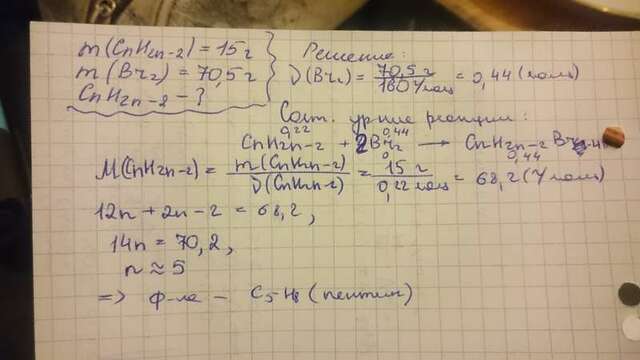 m(CnH2n-2) = 15г
m(Br2) = 70,5г
CnH2n-2 - ?
Решение:
ν(Br2) = 70,5 г / 160 г/моль = 0,44 (моль)
Сост. ур-ние реакции:
0,22 0,44
CnH2n-2 + 2Br2 → CnH2n-2Br4
0,44
M(CnH2n-2) = m(CnH2n-2) / ν(CnH2n-2) = 15 г / 0,22 моль = 68,2 (г/моль)
12n + 2n - 2 = 68,2,
14n = 70,2,
n ≈ 5
=> ф-ла - C5H8 (пентин)